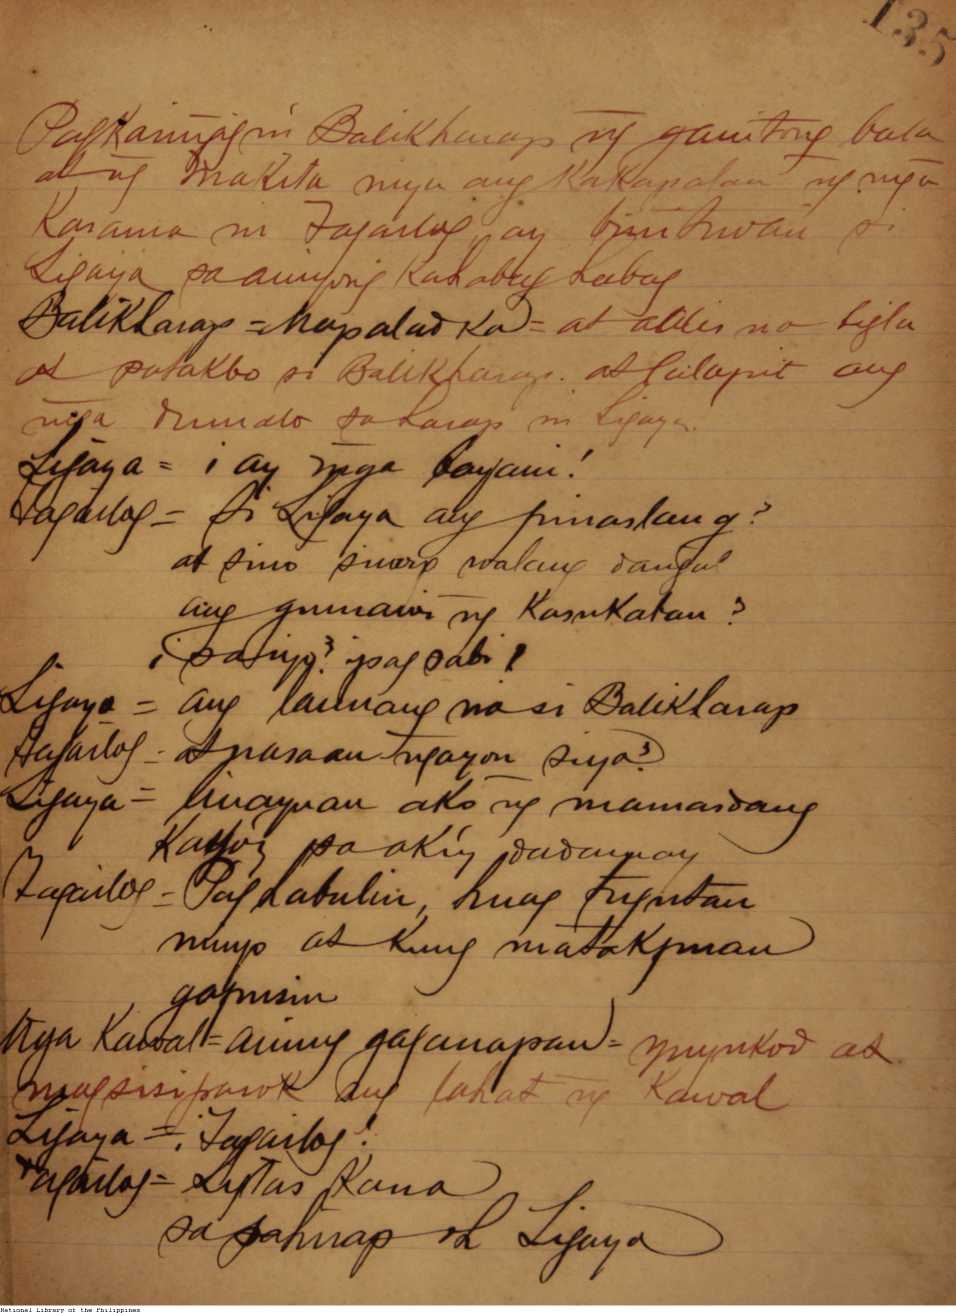 135
Pagkarinig ni Balikharap ng ganitong bala
at ng makita niya ang Kakapalan ng mga
Kasama ni Tagailog, ay binitiwan si
Ligaya sa anyong Kahabag habag
Balikharap = Mapalad Ka = at allis na bigla
at patakbo si Balikharap. at lalapit ang
mga dumalo sa harap ni Ligaya.
Ligaya = ¡ ay mga bayani!
Tagailog = Si Ligaya ang pinaslang?
at sino sinong walang dangal
ang gumawa ng Kasukatan?
¿ sa inyo? ipag sabi!
Ligaya = ang taimang na si Balikharap
Tagailog = at nasaan ngayon siya?
Ligaya = linayuan ako ng mamasdang
Kayo'y sa aki'y dadamay
Tagailog = Paghabulin, huag tugutan
ninyo at Kung matakpman
gapusin
Mga Kawal = aming gaganapan = yuyukod at
magsisipasok ang lahat ng Kawal
Ligaya = ¡Tagailog!
Tagailog = Ligtas Kana
sa pahirap oh Ligaya
National Library of the Philippines